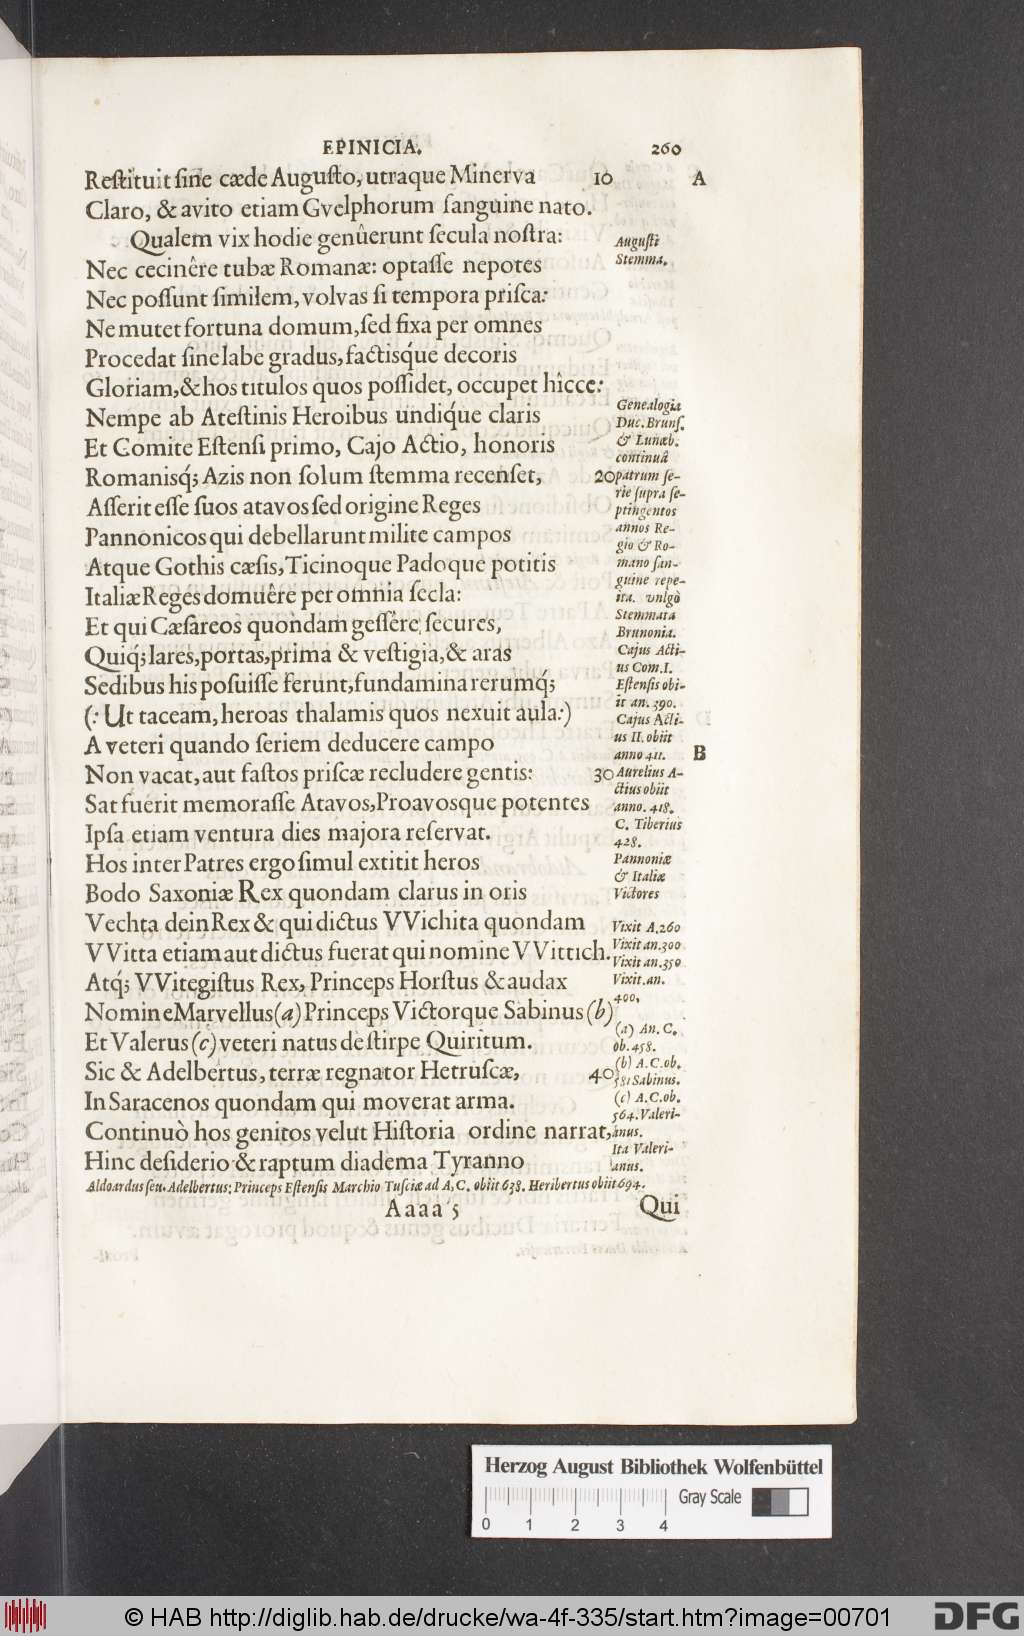 EPINICIA. 260
Reſtituit ſine cæde Auguſto, utraque Minerva 10 A
Claro, & avito etiam Gvelphorum ſanguine nato.
Qualem vix hodie genûerunt ſecula noſtra:
Nec cecinêre tubæ Romanæ: optaſſe nepotes
Nec poſſunt ſimilem, volvas ſi tempora priſca:
Ne mutet fortuna domum, ſed fixa per omnes
Procedat ſine labe gradus, factisq́ue decoris
Gloriam, & hos titulos quos poſſidet, occupet hîcce:
Nempe ab Ateſtinis Heroibus undiq́ue claris
Et Comite Eſtenſi primo, Cajo Actio, honoris
Romanisq́; Azis non ſolum ſtemma recenſet, 20
Aſſerit eſſe ſuos atavos ſed origine Reges
Pannonicos qui debellarunt milite campos
Atque Gothis cæſis, Ticinoque Padoque potitis
Italiæ Reges domuêre per omnia ſecla:
Et qui Cæſareos quondàm geſſêre ſecures,
Quiq́; lares, portas, prima & veſtigia, & aras
Sedibus his poſuiſſe ferunt, fundamina rerumq́;
(: Ut taceam, heroas thalamis quos nexuit aula:)
A veteri quando ſeriem deducere campo B
Non vacat, aut faſtos priſcæ recludere gentis: 30
Sat fuerit memoraſſe Atavos, Proavosque potentes
Ipſa etiam ventura dies majora reſervat.
Hos inter Patres ergo ſimul extitit heros
Bodo Saxoniæ Rex quondam clarus in oris
Vechta dein Rex & qui dictus VVichita quondam
VVitta etiam aut dictus fuerat qui nomine VVittich.
Atq́; VVitegiſtus Rex, Princeps Horſtus & audax
Nomine Marvellus (a) Princeps Victorque Sabinus (b)
Et Valerus (c) veteri natus de ſtirpe Quiritum.
Sic & Adelbertus, terræ regnator Hetruſcæ, 40
In Saracenos quondam qui moverat arma.
Continuò hos genitos velut Hiſtoria ordine narrat,
Hinc deſiderio & raptum diadema Tyranno
Auguſti
Stemma.
Genealogia
Duc. Brunſ.
& Lunæb.
continuâ
patrum ſe-
rie ſupra ſe-
ptingentos
annos Re-
gio & Ro-
mano ſan-
guine repe-
ita. vulgò
Stemmata
Brunonia.
Cajus Acti-
us Com. I.
Eſtenſis obi-
it an. 390.
Cajus Acti-
us II. obiit
anno 411.
Aurelius A-
ctius obiit
anno. 418.
C. Tiberius
428.
Pannoniæ
& Italiæ
Victores
Vixit A. 260
Vixit an. 300
Vixit an. 350
Vixit. an.
400,
(a) An. C.
ob. 458.
(b) A. C. ob.
581 Sabinus.
(c) A. C. ob.
564. Valeri-
anus.
Ita Valeri-
anus.
Aldoardus ſeu. Adelbertus; Princeps Eſtenſis Marchio Tuſciæ ad A, C. obiit 638. Heribertus obiit 694.
Aaaa 5 Qui
Herzog August Bibliothek Wolfenbüttel
Gray Scale
0 1 2 3 4
© HAB http://diglib.hab.de/drucke/wa-4f-335/start.htm?image=00701 DFG